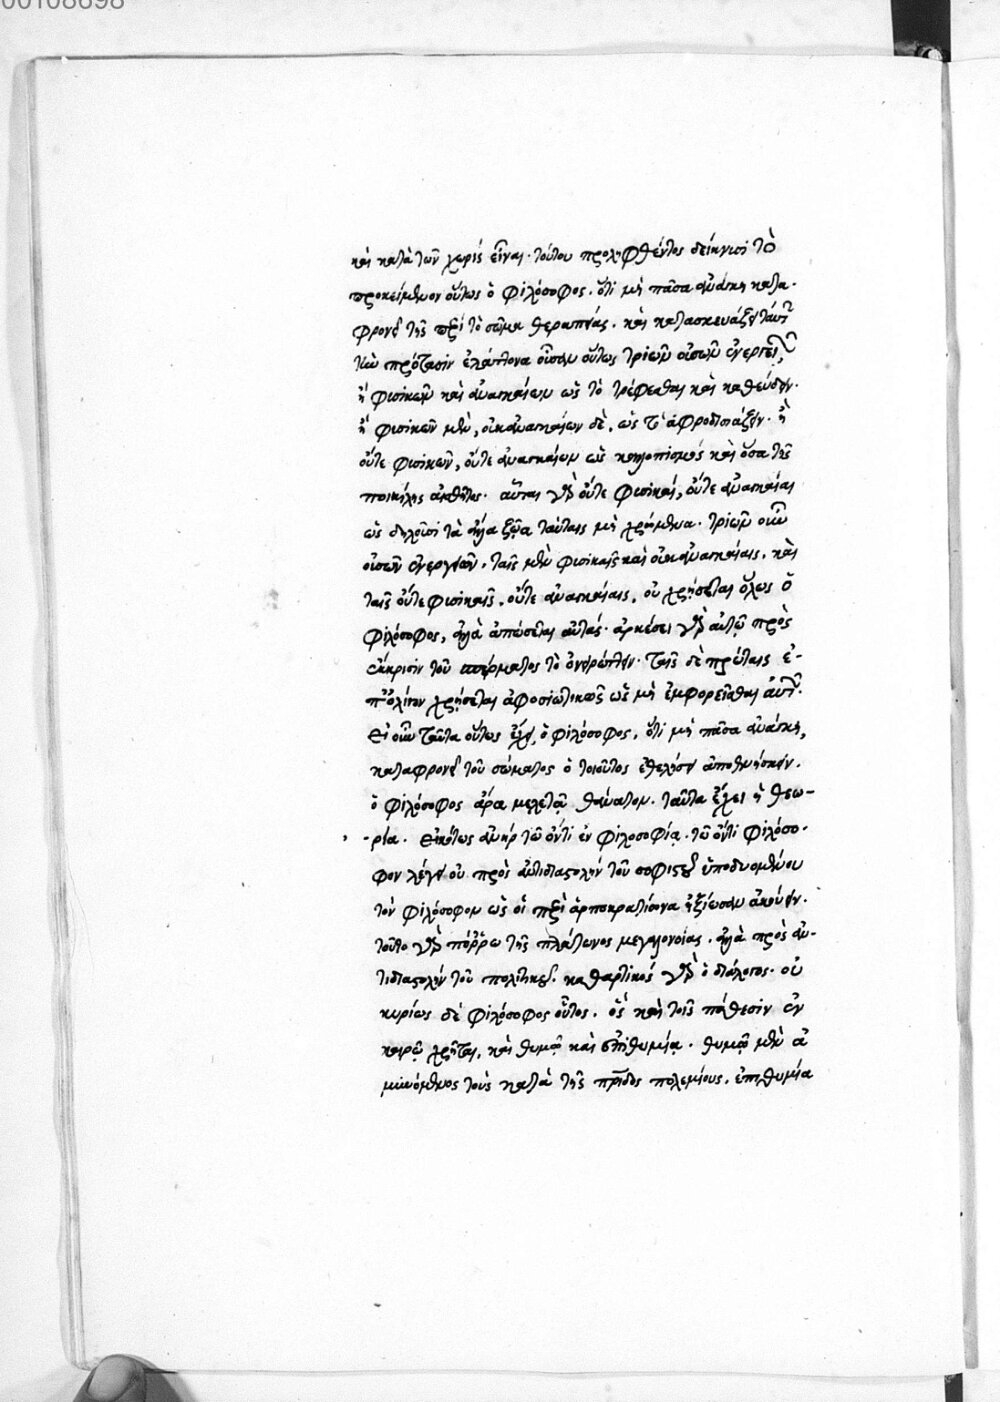 00108698
καὶ κατὰ τῶν χωρὶς εἶναι. τούτου προληφθέντος δείκνυσι τὸ
προκείμενον οὕτως ὁ φιλόσοφος. ὅτι μὴ πᾶσα ἀνάγκη κατα-
φρονεῖ τῆς περὶ τὸ σῶμα θεραπείας. καὶ κατασκευάζει ταύτην
τὴν πρότασιν ἐλάττονα οὖσαν οὕτως τριῶν οὐσῶν ἐνεργειῶν,
ἢ φυσικῶν καὶ ἀναγκαίων ὡς τὸ τρέφεσθαι καὶ καθεύδειν.
ἢ φυσικῶν μὲν, οὐκ ἀναγκαίων δὲ, ὡς τὸ ἀφροδισιάζειν. ἢ
οὔτε φυσικῶν, οὔτε ἀναγκαίων ὡς καλλοπισμὸς καὶ ὅσα τῆς
ποικίλης ἐσθῆτος. αὗται γὰρ οὔτε φυσικαί, οὔτε ἀναγκαῖαι
ὡς δηλοῦσι τὰ ἄλλα ζῶα ταύταις μὴ χρώμενα. τριῶν οὖν
οὐσῶν ἐνεργειῶν. ταῖς μὲν φυσικαῖς καὶ οὐκ ἀναγκαίαις, καὶ
ταῖς οὔτε φυσικαῖς, οὔτε ἀναγκαίαις, οὐ χρήσεται ὅλως ὁ
φιλόσοφος, ἀλλὰ ἀπώσεται αὐτάς. ἀρκέσει γὰρ αὐτῷ πρὸς
ἔκκρισιν τοῦ σπέρματος τὸ ὀνειρώττειν. ταῖς δὲ πρώταις ἐ-
π' ὀλίγον χρήσεται ἀφοσιωτικῶς ὡς μὴ ἐμφορεῖσθαι αὐτῶν.
Εἰ οὖν ταῦτα οὕτως ἔχει, ὁ φιλόσοφος, ὅτι μὴ πᾶσα ἀνάγκη,
καταφρονεῖ τοῦ σώματος ὁ τοιοῦτος ἐθελήσει ἀποθνήσκειν.
ὁ φιλόσοφος ἄρα μελετᾷ θάνατον. ταῦτα ἔχει ἡ θεω-
ρία. Εἰκότως ἀνὴρ τῷ ὄντι ἐν φιλοσοφίᾳ. τῷ ὄντι φιλόσο-
φον λέγει οὐ πρὸς ἀντιδιαστολὴν τοῦ σοφιστοῦ ὑποδυομένου
τὸν φιλόσοφον ὡς οἱ περὶ ἁρποκρατίωνα ἠξίωσαν ἀκούειν.
τοῦτο γὰρ πόρρω τῆς πλάτωνος μεγαλονοίας. ἀλλὰ πρὸς ἀν-
τιδιαστολὴν τοῦ πολιτικοῦ. καθαρτικὸς γὰρ ὁ διάλογος. οὐ
κυρίως δὲ φιλόσοφος οὗτος. ὃς καὶ τοῖς πάθεσιν ἐν
καιρῷ χρῆται, καὶ θυμῷ καὶ ἐπιθυμίᾳ. θυμῷ μὲν ἀ
μυνόμενος τοὺς κατὰ τῆς πρίδος πολεμίους. ἐπιθυμία